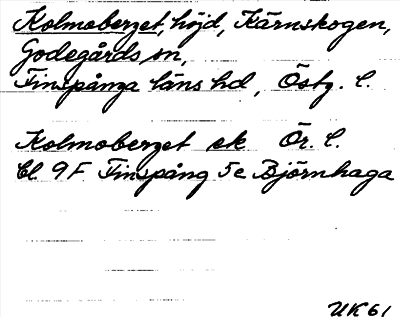 Kolmoberget, höjd, Kärnskogen,
Godegårds sn,
Finspånga läns hd, Östg. l.
Kolmoberget ek Ör. l.
bl 9F Finspång 5e Björnhaga
UK 61